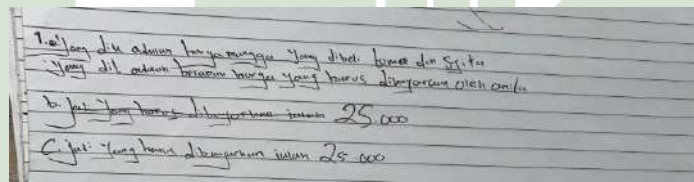 1.a. yang dik adalah harga mangga yang dibeli boma dan Ssita
yang dit adalah berapa harga yang harus dibayarkan oleh anita
b. jadi yang harus dibayarkan ialah 25.000
C. jadi yang harus dibayarkan ialah 25.000